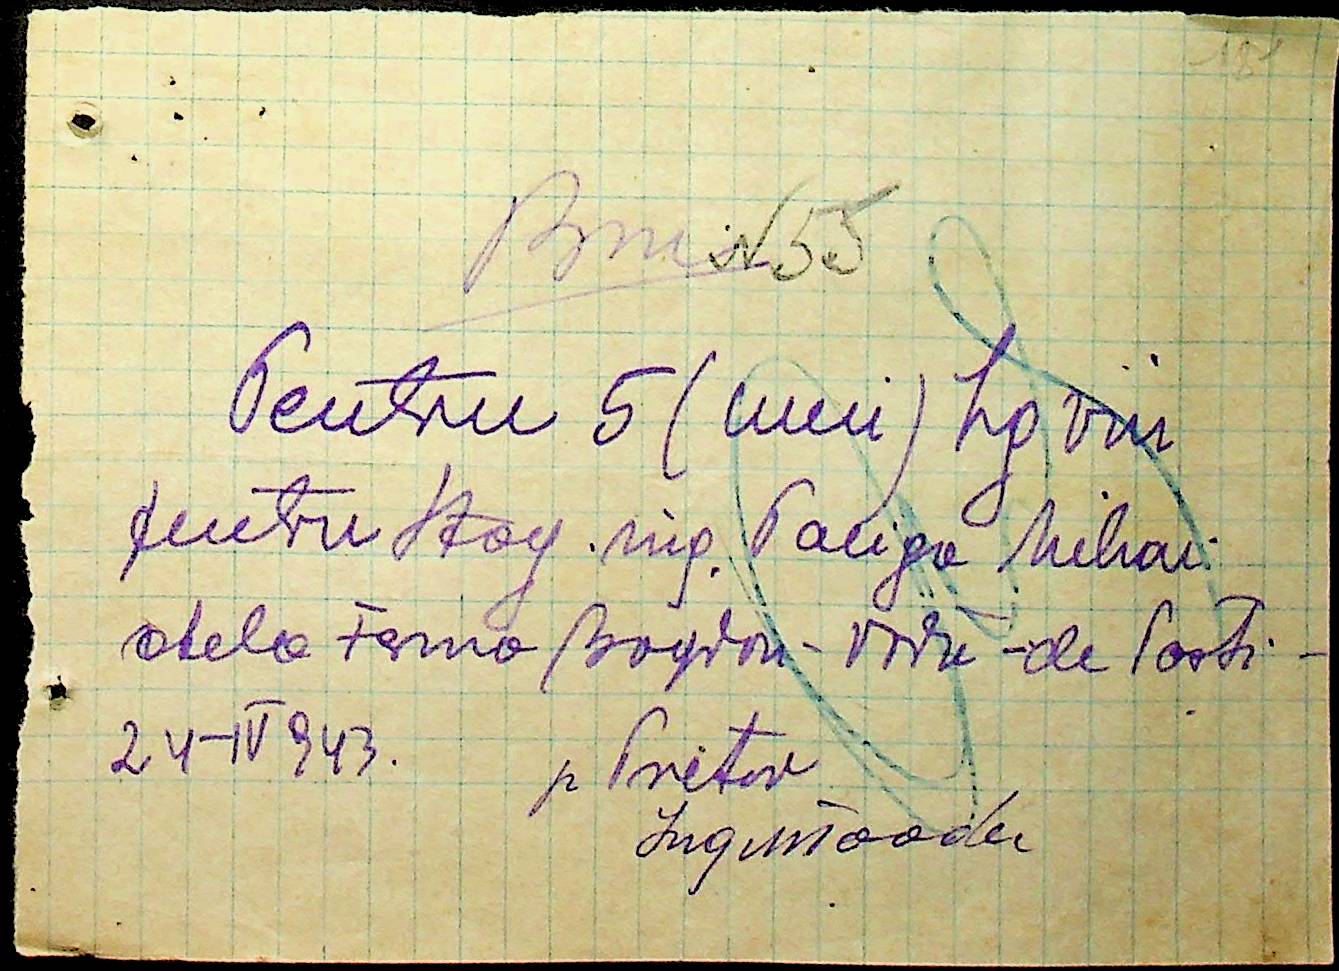 181
Bon N 55
Pentru 5 (cinci) kg vin
pentru stag. ing. Paliga Mihai
dela Ferma Bogdan-Vodă - de Paști -
24-IV 943.
p Pretor
Ing